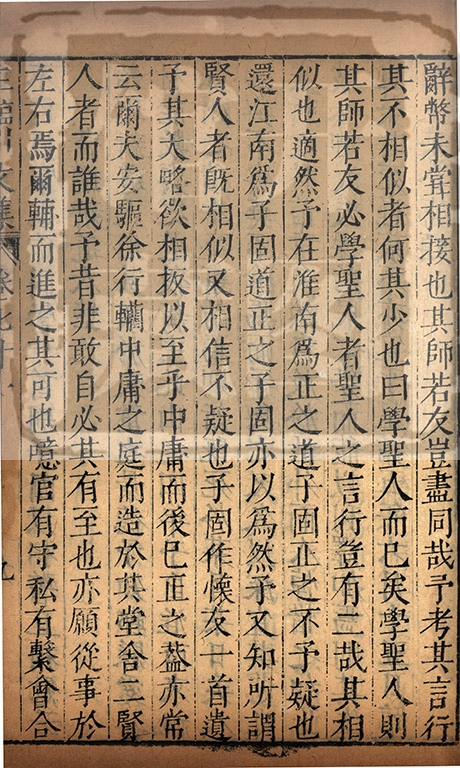 辭幣未嘗相接也其師若友豈盡同哉予考其言行
其不相似者何其少也曰學聖人而已矣學聖人則
其師若友必學聖人者聖人之言行豈有二哉其相
似也適然予在淮南爲正之道子固正之不予疑也
還江南爲子固道正之子固亦以爲然予又知所謂
賢人者旣相似又相信不疑也子固作懷友一首遺
予其大畧欲相扳以至乎中庸而後已正之蓋亦常
云爾夫安驅徐行轥中庸之庭而造於其堂舍二賢
人者而誰哉予昔非敢自必其有至也亦願從事於
左右焉爾輔而進之其可也噫官有守私有繫會合
王臨川文集 卷七十一 九